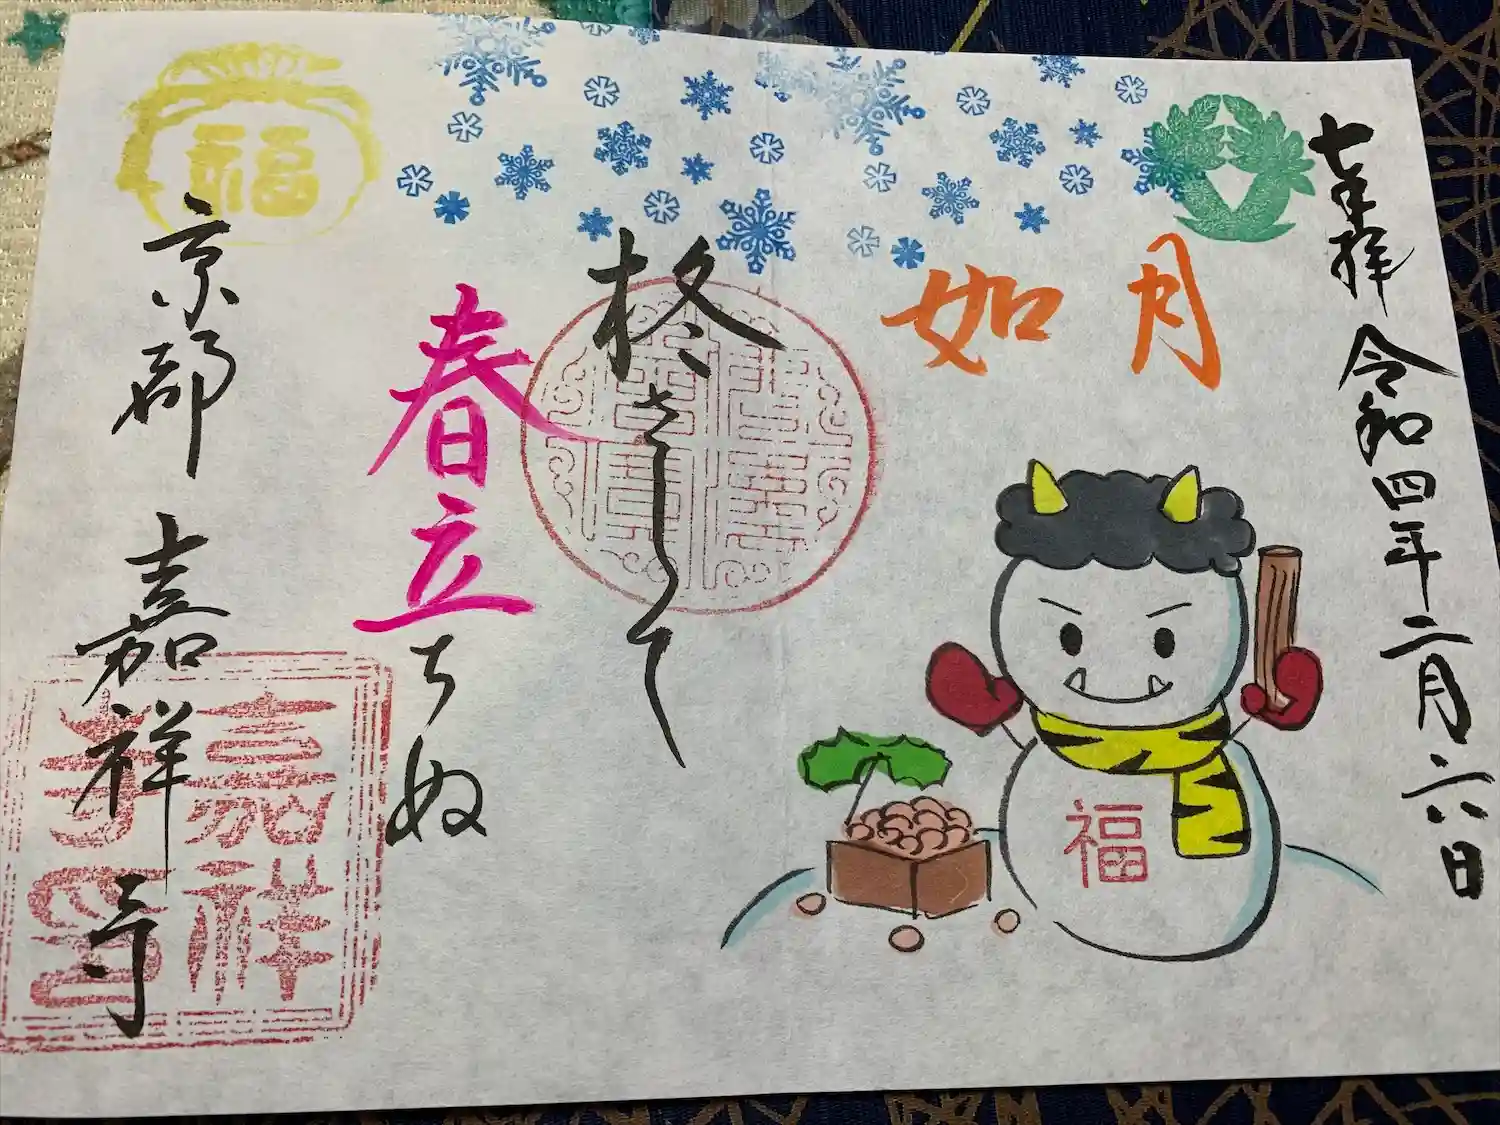 奉拝 令和四年二月六日
如月
柊さして
春立ちぬ
京都 嘉祥寺
福
福
嘉祥
寺印